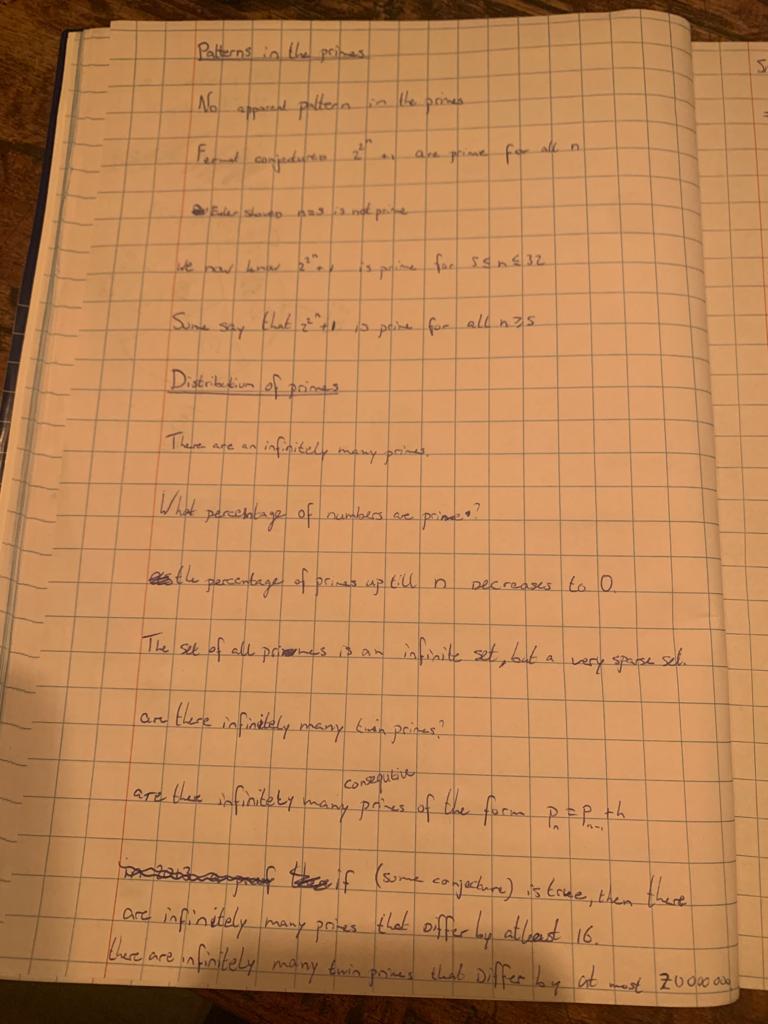 Patterns in the primes
No apparent pattern in the primes
Fermat conjectured 2^2^n +1 are prime for all n
Euler showed n=5 is not prime
we now know 2^2^n+1 is prime for 5≤n≤32
Some say that 2^2^n+1 is prime for all n≥5
Distribution of primes
There are an infinitely many primes.
What percentage of numbers are prime?
the percentage of primes up till n decreases to 0.
The set of all primes is an infinite set, but a very sparse set.
are there infinitely many twin primes?
consequtive
are thee infinitely many primes of the form p_n = p_n-1 + h
if (some conjecture) is true, then there
are infinitely many primes that differ by atleast 16.
there are infinitely many twin primes that differ by at most 70000000